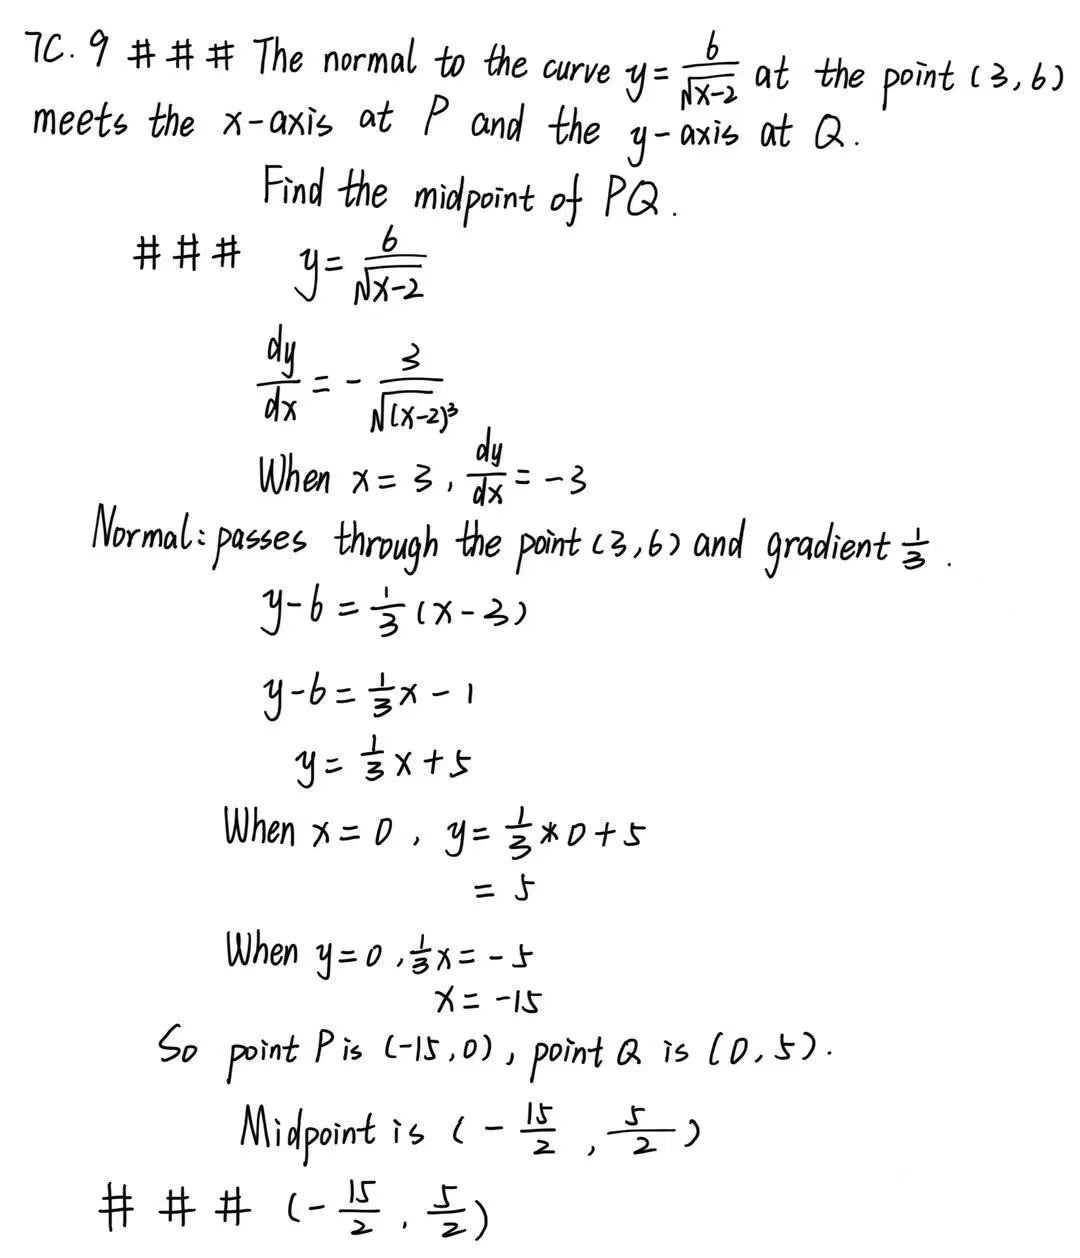 7C.9 ### The normal to the curve y=6/√(x-2) at the point (3,6)
meets the x-axis at P and the y-axis at Q.
Find the midpoint of PQ.
### y=6/√(x-2)
dy/dx=-3/√((x-2)³)
When x=3, dy/dx=-3
Normal: passes through the point (3,6) and gradient 1/3.
y-6=1/3(x-3)
y-6=1/3x-1
y=1/3x+5
When x=0, y=1/3*0+5
=5
When y=0, 1/3x=-5
x=-15
So point P is (-15,0), point Q is (0,5).
Midpoint is (-15/2, 5/2)
### (-15/2, 5/2)